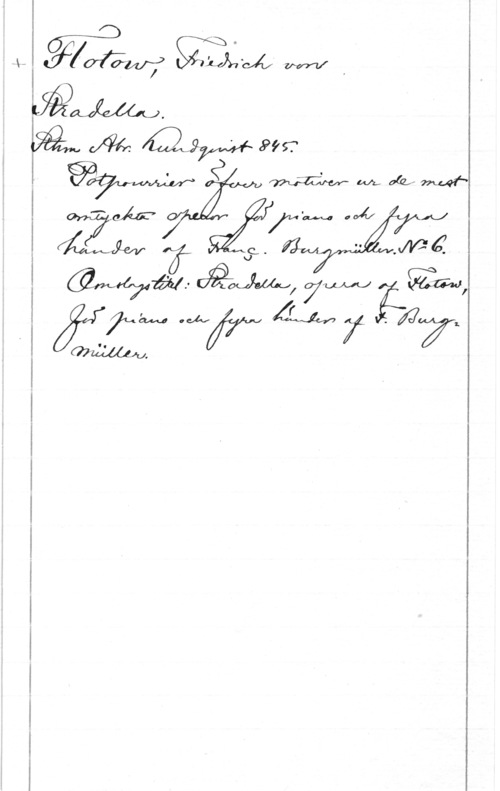 + Flotow, Friedrich von
Stradella.
Sthm Abr. Lundquist 845.
Potpourrier öfver motiver ur de mest
omtyckta operor för piano och fyra
händer af Franç. Burgmüller. No 6.
Omslagstitel: Stradella, opera af Flotow,
för piano och fyra händer af F. Burg-
müller.